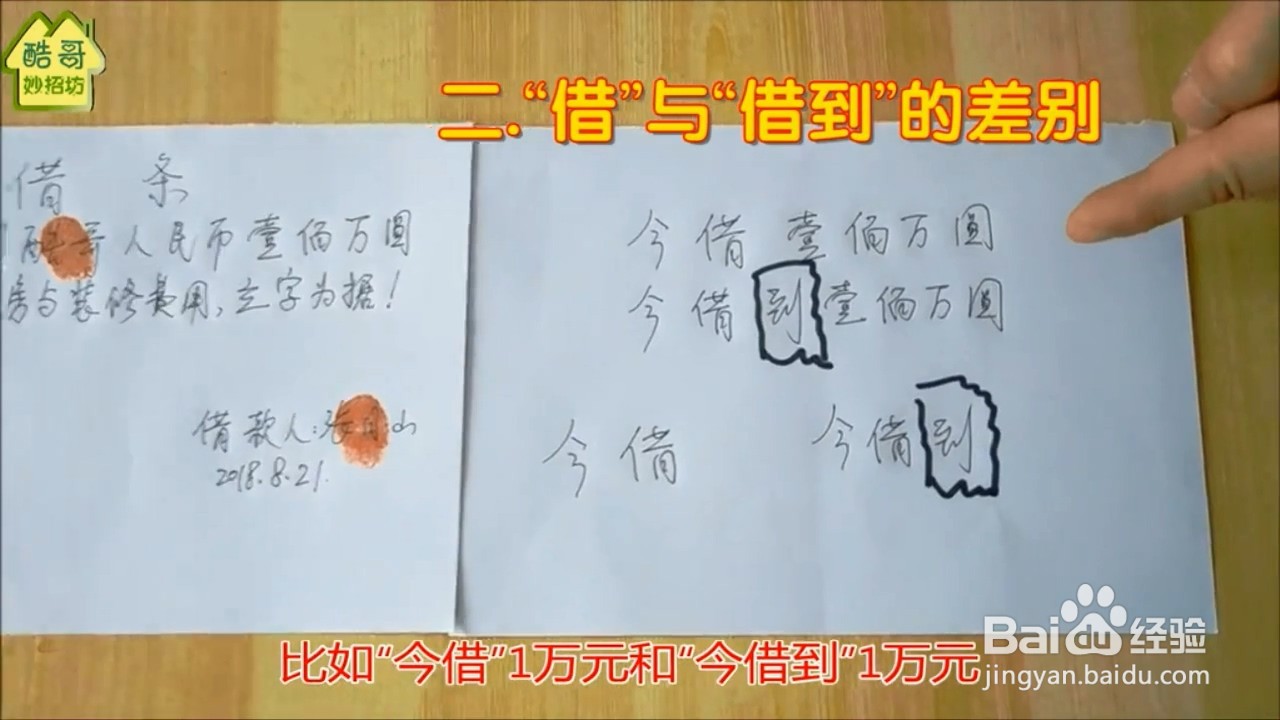 酷哥
妙招坊
二.“借”与“借到”的差别
借 条
酷哥人民币壹佰万圆
房与装修费用,立字为据!
借款人:张月山
2018.8.21.
今借 壹佰万圆
今借到壹佰万圆
今借
今借到
比如“今借”1万元和“今借到”1万元
Baidu经验
jingyan.baidu.com